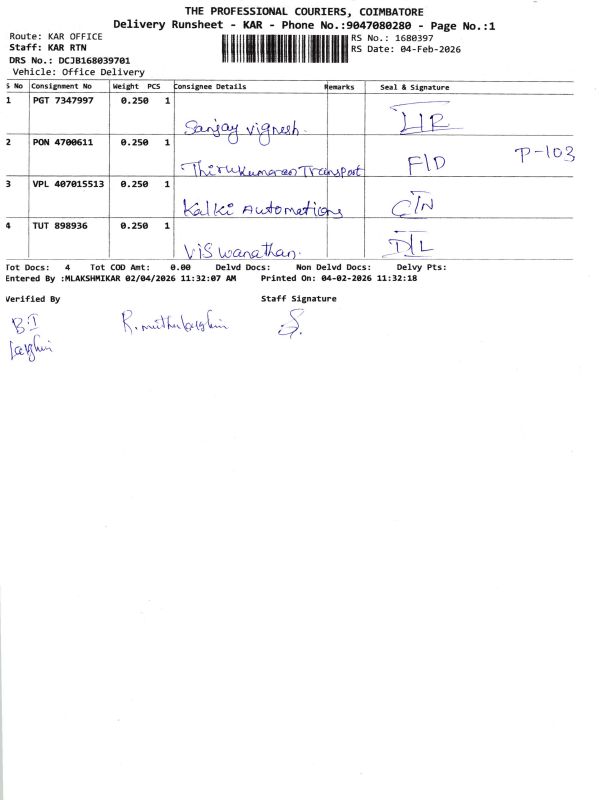 THE PROFESSIONAL COURIERS, COIMBATORE
Delivery Runsheet - KAR - Phone No.:9047080280 - Page No.:1
Route: KAR OFFICE
RS No.: 1680397
Staff: KAR RTN
RS Date: 04-Feb-2026
DRS No.: DCJB168039701
Vehicle: Office Delivery
S No Consignment No Weight PCS Consignee Details Remarks Seal & Signature
1 PGT 7347997 0.250 1
Sanjay vignesh.
2 PON 4700611 0.250 1
Thirukumaran Transport F/D P-103
3 VPL 407015513 0.250 1
Kalki Automations C/N
4 TUT 898936 0.250 1
Viswanathan. D/L
Tot Docs: 4 Tot COD Amt: 0.00 Delvd Docs: Non Delvd Docs: Delvy Pts:
Entered By :MLAKSHMIKAR 02/04/2026 11:32:07 AM Printed On: 04-02-2026 11:32:18
Verified By Staff Signature